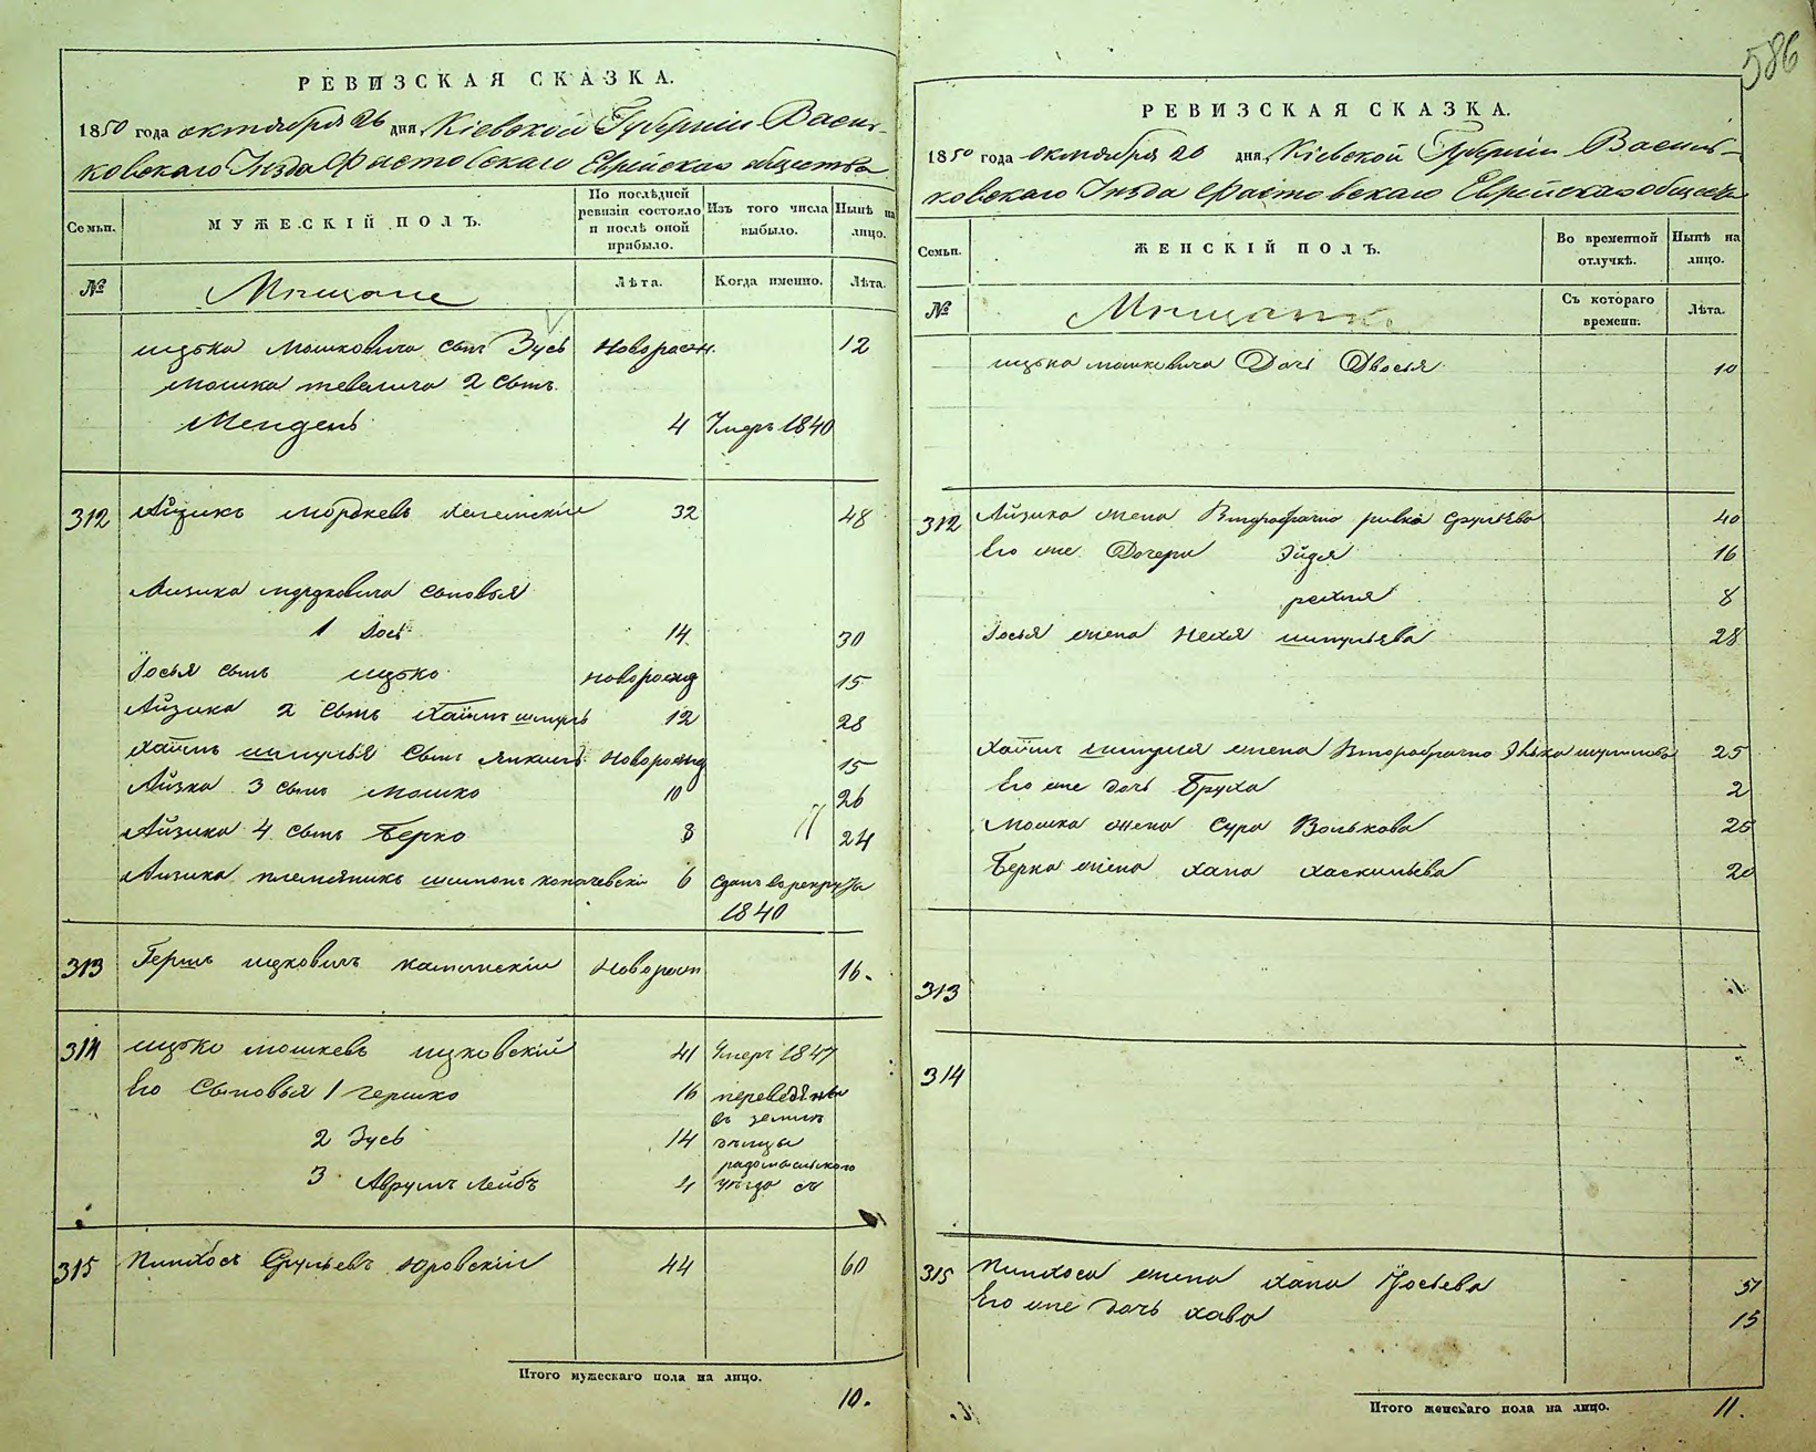 586
РЕВИЗСКАЯ СКАЗКА.
1850 года октября 26 дня, Кіевской Губерніи Василь-
ковскаго Уѣзда Фастовскаго Еврейскаго общества
Семьи.
МУЖЕСКІЙ ПОЛЪ.
По послѣдней ревизіи состояло и послѣ оной прибыло.
Изъ того числа выбыло.
Нынѣ на лицо.
№
Мѣщане
Лѣта.
Когда именно.
Лѣта.
ицька Мошковича сынъ Зусь Новорож. 12
Мошка тевелича 2 сынъ
Мендель 4 Умеръ 1840
312 Айзикъ Мордкевъ 32 48
Айзика мордковича сыновья
1 Іось 14 30
Іосья сынъ ицько новорожд 15
Айзика 2 сынъ Хаимъ шмуль 12 28
Хаимъ шмулья сынъ Янкель Новорожд 15
Айзика 3 сынъ Мошко 10 26
Айзика 4 сынъ Берко 8 24
Айзика племянникъ шимонъ 6 Сданъ въ рекруты
1840
313 Гершъ ицковичъ каминскіи Новорож 16.
314 ицько мошкевъ ицковскій 41 Умеръ 1847
Его Сыновья 1 гершко 16 переведены
въ земле
2 Зусь 14 дельцы
радомысльского
3 Аврумъ Лейбъ 4 уѣзда съ
315 Пинхосъ Срульевъ Юровскіи 44 60
Итого мужескаго пола на лицо.
10.
РЕВИЗСКАЯ СКАЗКА.
1850 года октября 26 дня, Кіевской Губерніи Василь-
ковскаго Уѣзда Фастовскаго Еврейскаго общества
Семьи.
ЖЕНСКІЙ ПОЛЪ.
Во временной отлучкѣ.
Нынѣ на лицо.
№
Мѣщанки
Съ котораго времени.
Лѣта.
ицька мошковича Дочь Двосья 10
312 Айзика жена Второбрачно ривка Срульева 40
Его же Дочери Эйдя 16
рейзя 8
Іосья жена Нехя шмульева 28
Хаимъ шмуля жена Второбрачно 25
Его же дочь Бруха 2
Мошка жена Сура Волькова 25
Берка жена хана хаскильева 20
313
314
315 Пинхоса жена хана Иосьева 51
Его же дочь хава 15
Итого женскаго пола на лицо.
11.